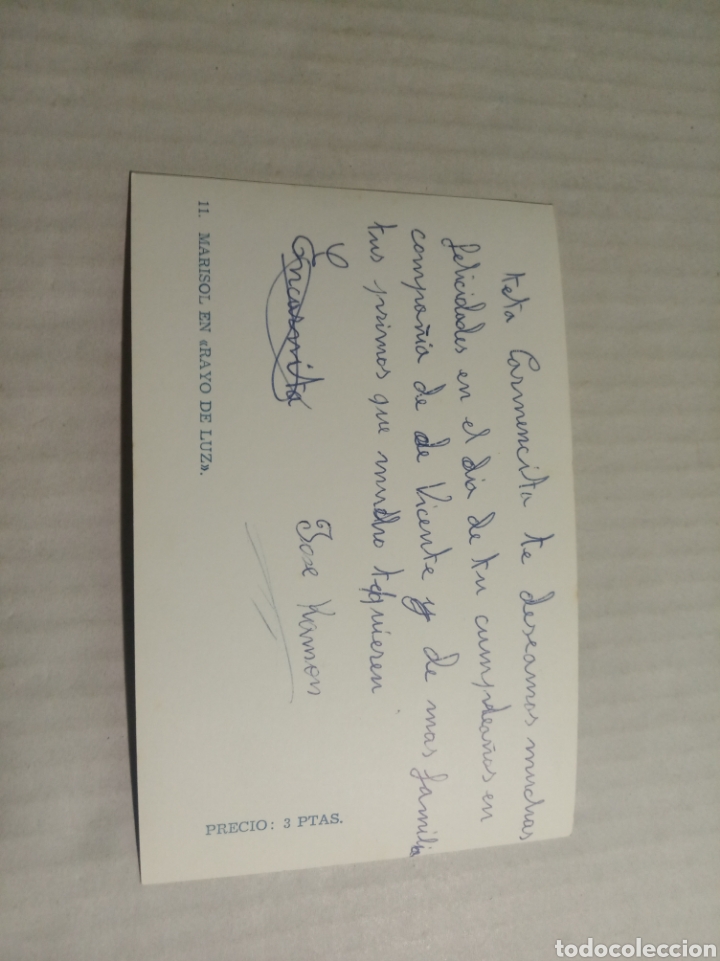 teta Carmencita te deseamos muchas
felicidades en el dia de tu cumpleaños en
compañia de de Vicente y de mas familia
tus primos que mucho te quieren
Encarnita Jose Ramon
11. MARISOL EN «RAYO DE LUZ».
PRECIO: 3 PTAS.
todocoleccion